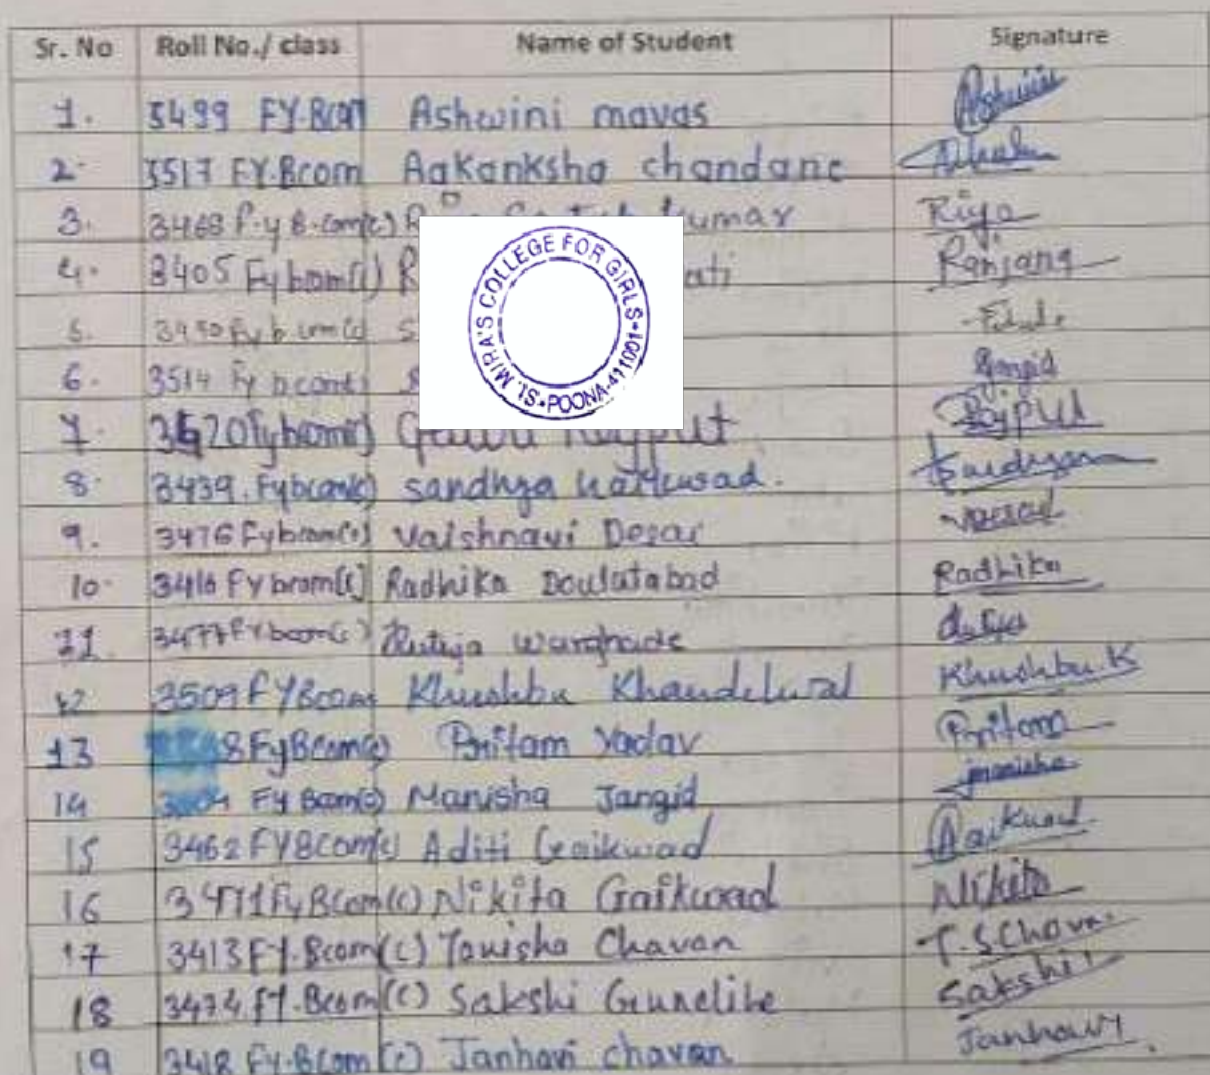 Sr. No Roll No./ class Name of Student Signature
1. 5499 FY.BCom Ashwini mavas Ashwini
2. 3517 FY.Bcom Aakanksha chandane
3. 3468 F.y B.com(c) kumar Riya
4. 3405 Fy bcom(c) Ranjana
5. 3450 Fy b com(c) S
6. 3514 Fy bcom(c)
ST. MIRA'S COLLEGE FOR GIRLS POONA-411001
7. Fybcom(c) Gauri Rajput Rajput
8. 3439. Fybcom(c) sandhya
9. 3476 Fybcom(c) Vaishnavi Desai
10. 3416 Fybcom(c) Radhika Doulatabad Radhika
11. 3477 FYbcom(c) Rutuja Warghade
12 3509 FYBcom Khushbu Khandelwal Khushbu.K
13 8 FyBcom(c) Pritam Yadav
14 FY Bcom(c) Manisha Jangid manisha
15 3462 FYBCom(c) Aditi Gaikwad Gaikwad
16 3471 FyBcom(c) Nikita Gaikwad Nikita
17 3413 FY.Bcom(c) Tanisha Chavan T.S.Chavan
18 3474 FY.Bcom(c) Sakshi Sakshi
19 3418 FY.Bcom(c) Janhavi chavan Janhavi